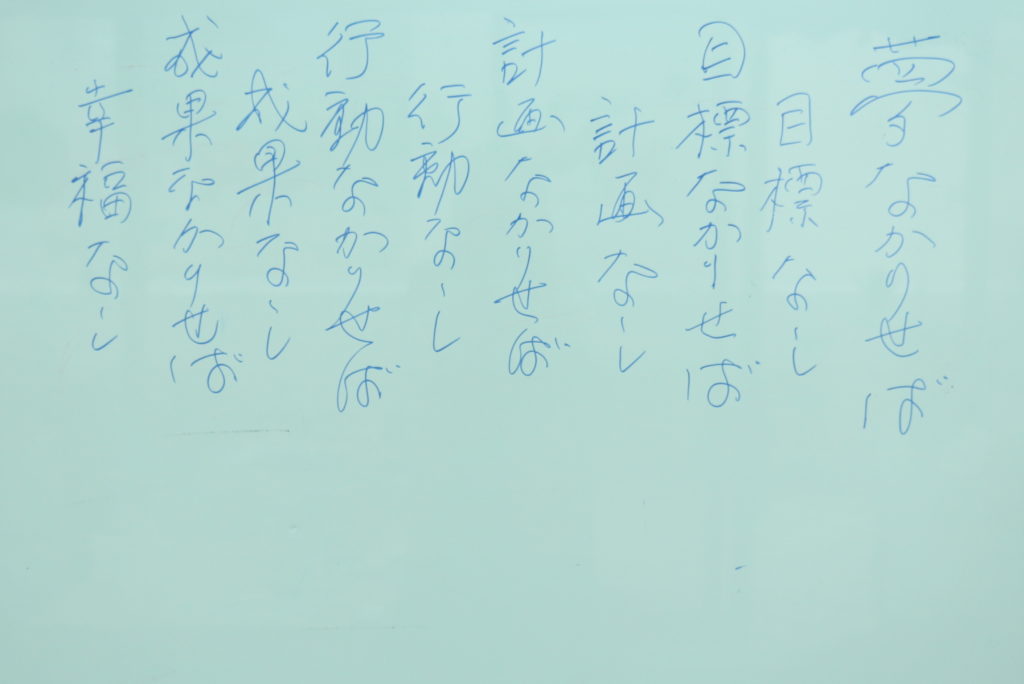 夢なかりせば
目標なし
目標なかりせば
計画なし
計画なかりせば
行動なし
行動なかりせば
成果なし
成果なかりせば
幸福なし